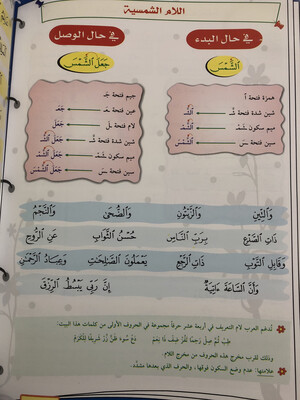 اللام الشمسية
في حال البدء
في حال الوصل
ٱلشَّمْسَ
جَعَلَ ٱلشَّمْسَ
همزة فتحة أَ
شين شدة فتحة شَّـ ← ٱلشَّـ
ميم سكون ـمْـ ← ٱلشَّمْـ
سين فتحة سَ ← ٱلشَّمْسَ
جيم فتحة جَـ
عين فتحة عَـ ← جَعَـ
لام فتحة لَ ← جَعَلَ
شين شدة فتحة شَّـ ← جَعَلَ ٱلشَّـ
ميم سكون ـمْـ ← جَعَلَ ٱلشَّمْـ
سين فتحة سَ ← جَعَلَ ٱلشَّمْسَ
وَٱلتِّينِ وَٱلزَّيْتُونِ وَٱلضُّحَىٰ وَٱلنَّجْمُ
ذَاتِ ٱلصَّدْعِ بِرَبِّ ٱلنَّاسِ حُسْنُ ٱلثَّوَابِ عَنِ ٱلرُّوحِ
وَقَابِلِ ٱلتَّوْبِ ذَاتِ ٱلرَّجْعِ يَعْمَلُونَ ٱلصَّٰلِحَٰتِ وَعِبَادُ ٱلرَّحْمَٰنِ
وَأَنَّ ٱلسَّاعَةَ ءَاتِيَةٌ إِنَّ رَبِّي يَبْسُطُ ٱلرِّزْقَ
تُدغم العرب لام التعريف في أربعة عشر حرفاً مجموعة في الحروف الأولى من كلمات هذا البيت:
طِبْ ثُمَّ صِلْ رَحِمًا تَفُزْ ضِفْ ذَا نِعَمْ دَعْ سُوءَ ظَنٍّ زُرْ شَرِيفًا لِلْكَرَمْ
وذلك لقرب مخرج هذه الحروف من مخرج اللام.
علامتها: عدم وضع السكون فوقها، والحرف الذي بعدها مشدَّد.